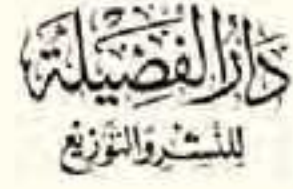 دَارُ الفَضِيلَة
لِلنَّشْرِ وَالتَّوْزِيع